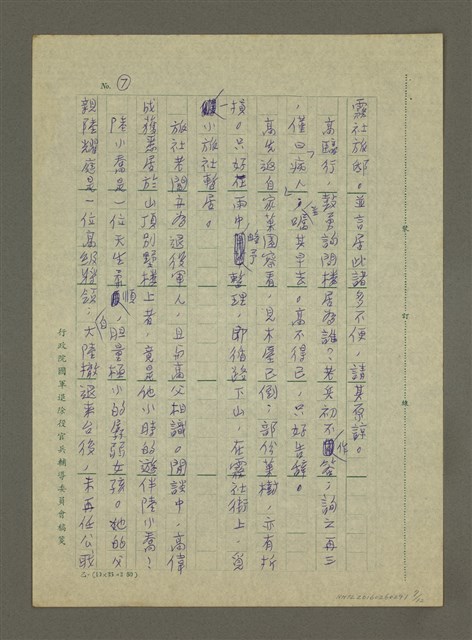 霧社旅邸。並言居此諸多不便,請其原諒。
高臨行,鼓勇詢問樓居為誰?老夫初不作答;詢之再三
,僅曰「病人」;並囑其早去。高不得已,只好告辭。
高先返自家菓園察看,見木屋已倒;部份菓樹,亦有折
損。只好在雨中略予整理,即循路下山,在霧社街上,覓
一小旅社暫居。
旅社老闆亦為退役軍人,且與高父相識。閒談中,高偉
成獲悉居於山頂別墅樓上者,竟是他小時的遊伴陸小喬?
陸小喬是一位天生柔順,胆量極小的孱弱女孩。她的父
親陸耀庭是一位高級將領;自大陸撤退來台後,未再任公職
No. ⑦
裝 訂 線
行政院國軍退除役官兵輔導委員會稿箋
乙:(12×25=2 30)